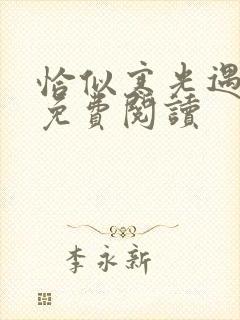 恰似寒光遇
免費閱讀
李永新